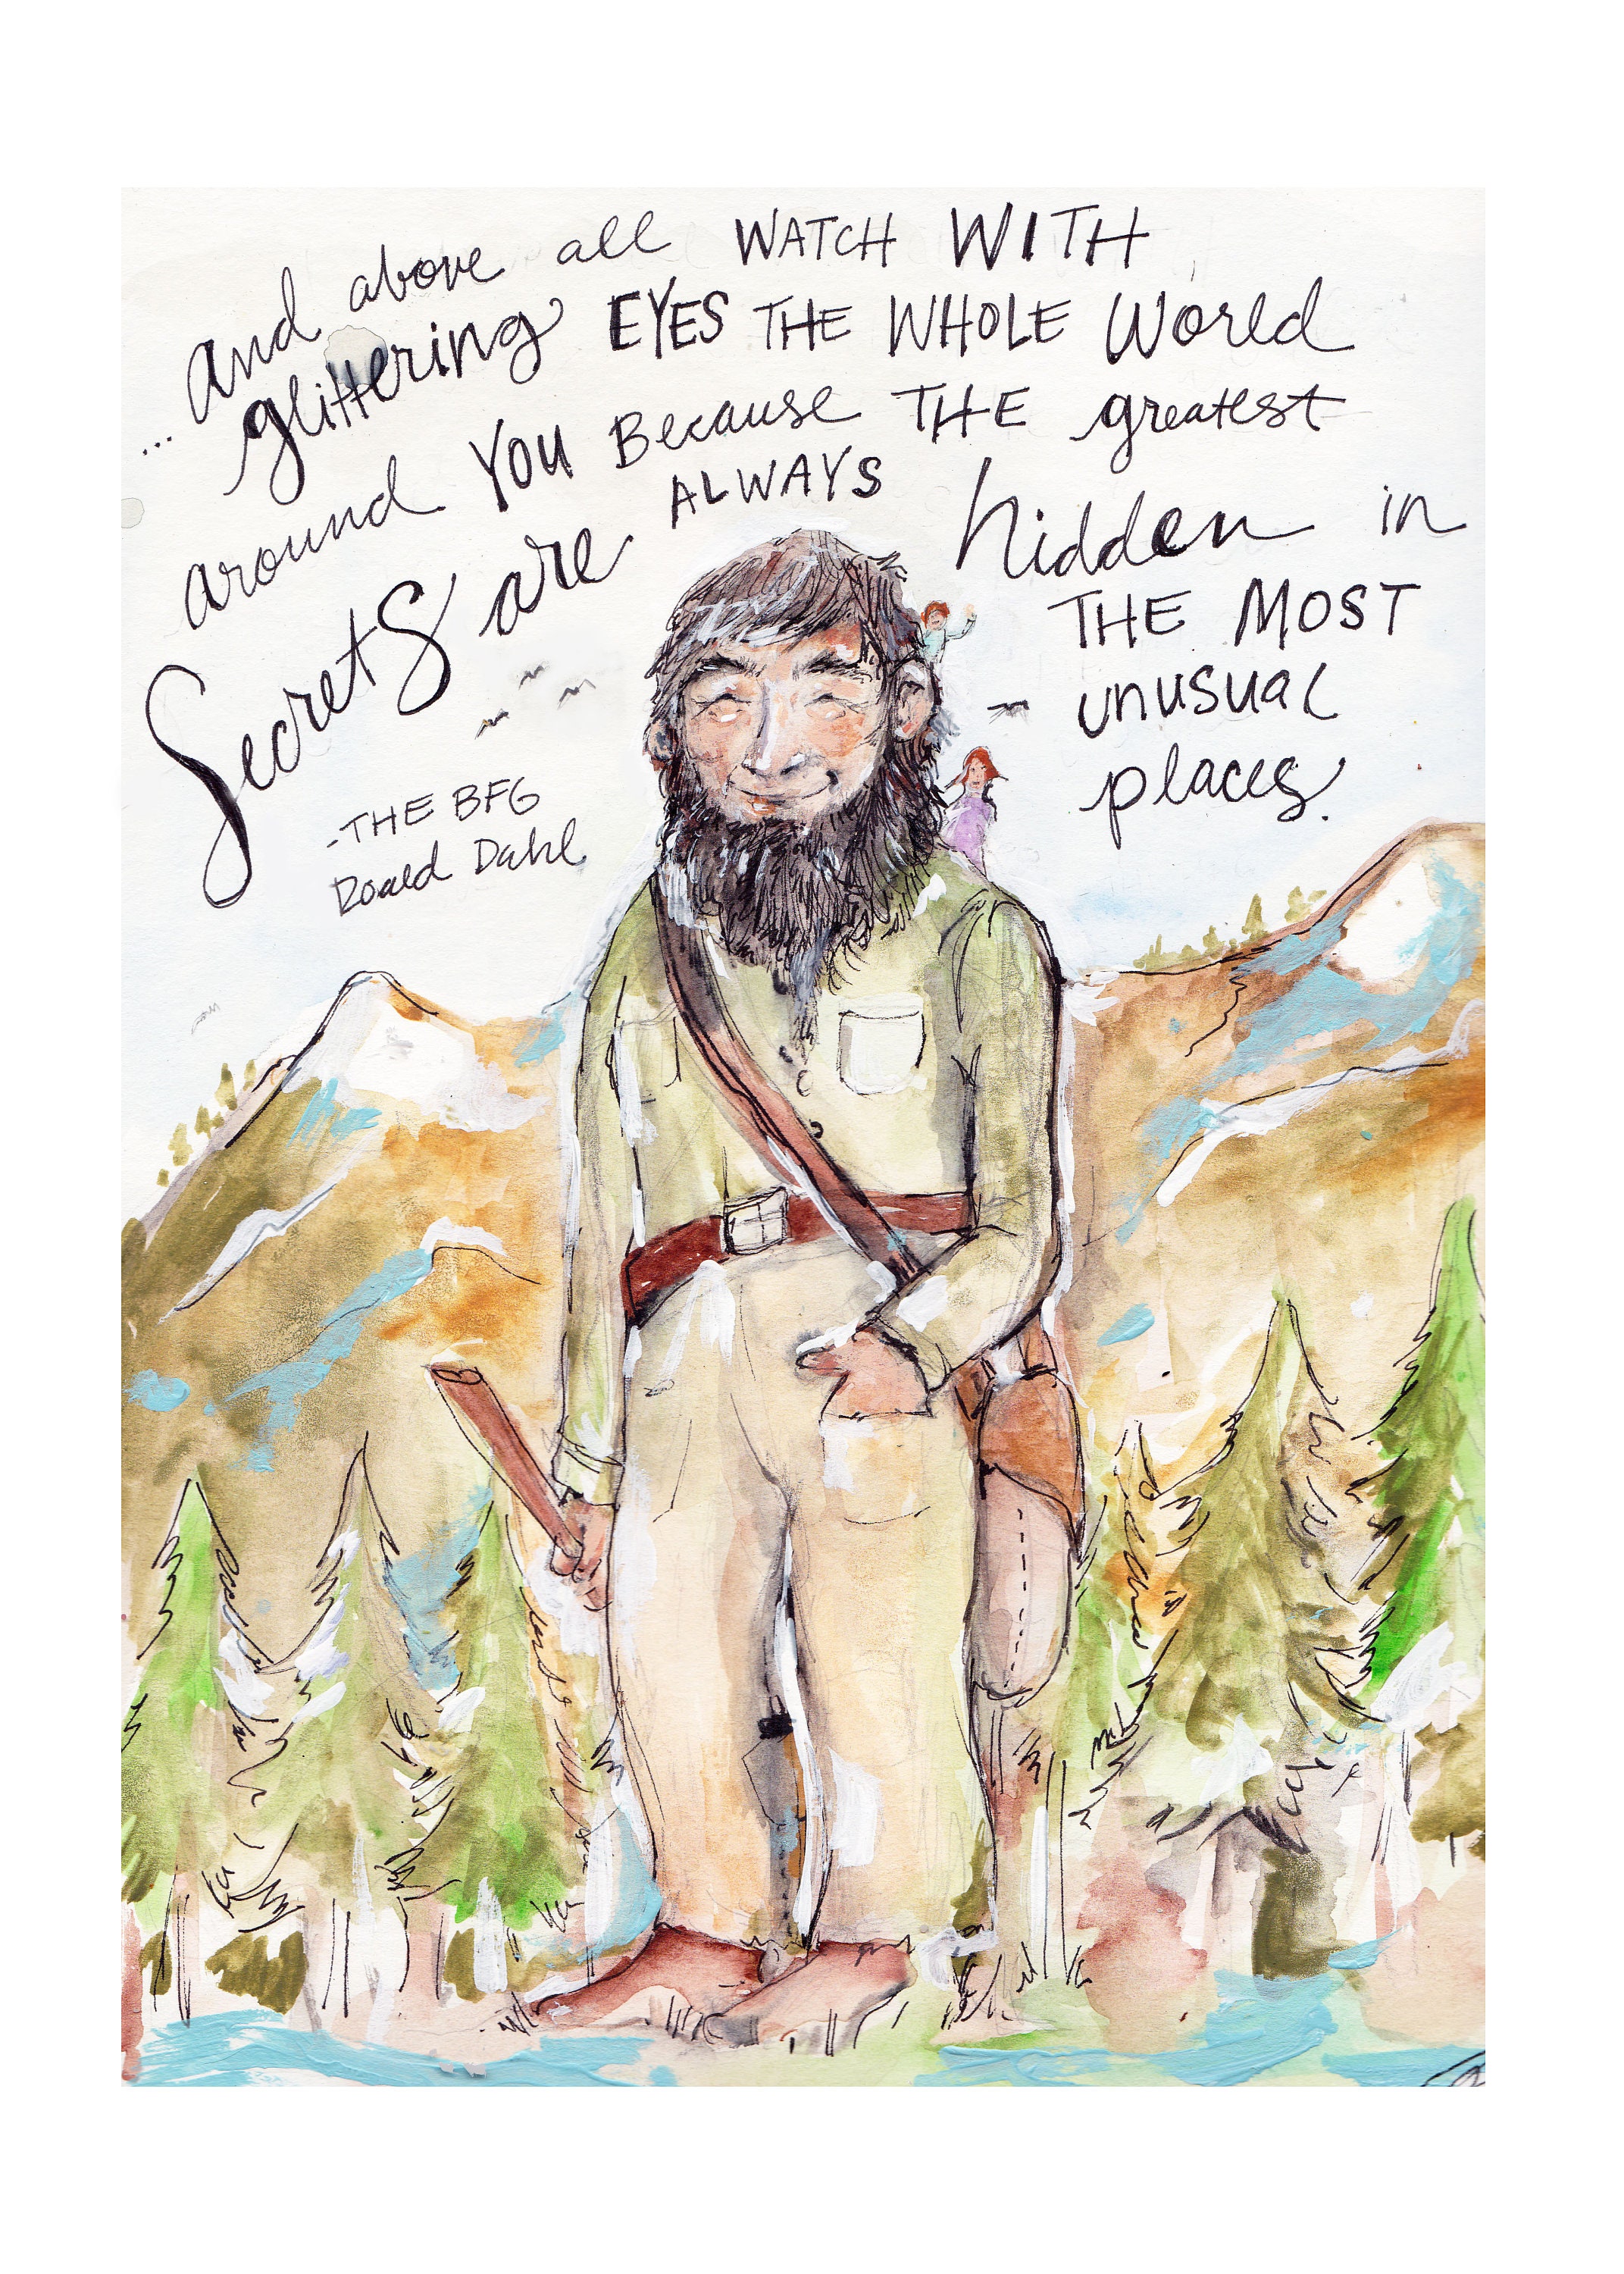 ... and above all WATCH WITH
glittering EYES THE WHOLE World
around YOU Because THE greatest
Secrets are ALWAYS hidden in
THE MOST
unusual
places.
-THE BFG
Roald Dahl